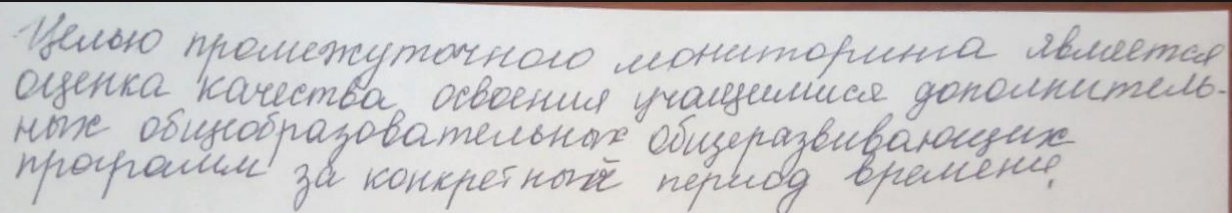 Целью промежуточного мониторинга является
оценка качества освоения учащимися дополнитель-
ных общеобразовательных общеразвивающих
программ за конкретный период времени.